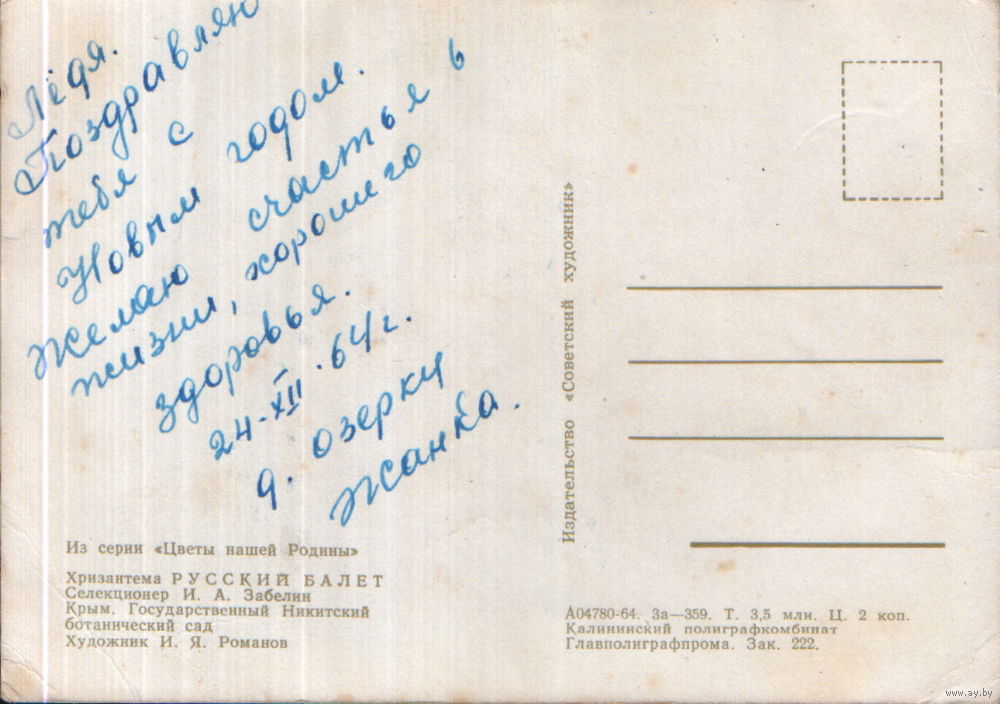 Лёдя.
Поздравляю
тебя с
Новым годом.
Желаю счастья в
жизни, хорошего
здоровья.
24-XII.64г.
д. озерку
Жанка.
Из серии «Цветы нашей Родины»
Хризантема РУССКИЙ БАЛЕТ
Селекционер И. А. Забелин
Крым. Государственный Никитский
ботанический сад
Художник И. Я. Романов
Издательство «Советский художник»
А04780-64. За—359. Т. 3,5 млн. Ц. 2 коп.
Калининский полиграфкомбинат
Главполиграфпрома. Зак. 222.
www.ay.by